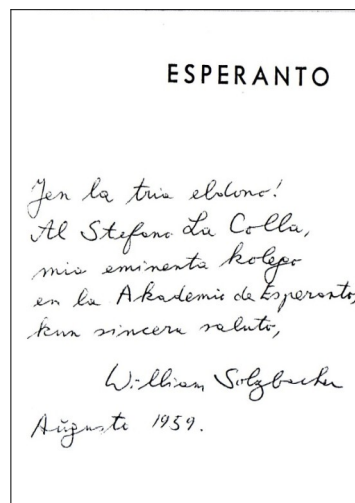 ESPERANTO
Jen la tria eldono!
Al Stefano La Colla,
mia eminenta kolego
en la Akademio de Esperanto,
kun sincera saluto,
William Solzbacher
Aŭgusto 1959.